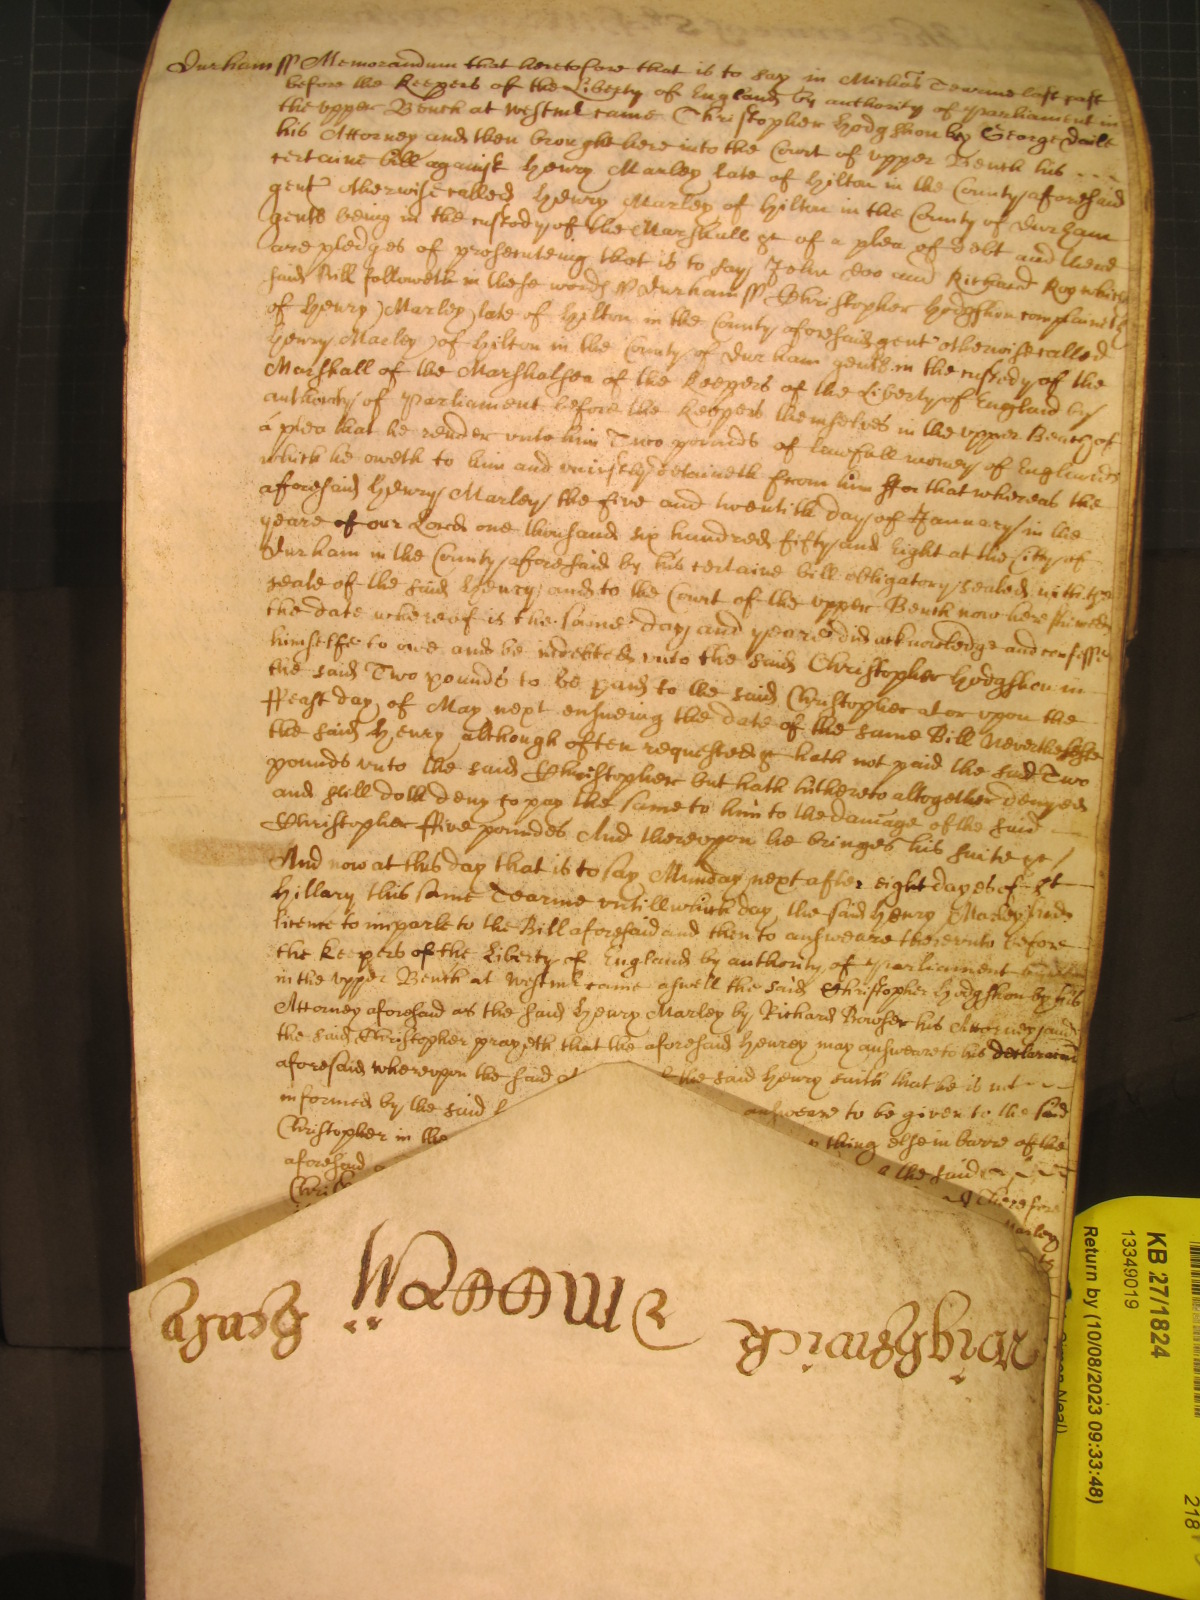 Durham ss Memorandum that heretofore that is to say in Michās Tearme last past
before the Keepers of the Liberty of England by authority of Parliament in
the upper Bench at Westmr came Christopher Hodgshon by George
his Attorney and then brought here into the Court of upper Bench his
certaine bill against Henry Marley late of Hilton in the County aforesaid
gent otherwise called Henry Marley of Hilton in the County of Durham
gentl being in the custody of the Marshall &c of a plea of debt and there
are pledges of prosecuteing that is to say John Doo and Richard Roo which
said Bill followeth in these words ss Durham ss Christopher Hodgshon complaineth
of Henry Marley late of Hilton in the County aforesaid gent otherwise called
Henry Marley of Hilton in the County of Durham gentl in the custody of the
Marshall of the Marshalsea of the Keepers of the Liberty of England by
authority of Parliament before the Keepers themselves in the upper Bench of
a plea that he render unto him Two pounds of lawfull money of England
which he oweth to him and uniustly detaineth from him ffor that whereas the
aforesaid Henry Marley the five and twentith day of January in the
yeare of our Lord one thousand six hundred fifty and Eight at the City of
Durham in the County aforesaid by his certaine bill obligatory sealed with the
seale of the said Henry and to the Court of the upper Bench now here shewed
the date whereof is the same day and yeare did acknowledge and confesse
himselfe to owe and be indebted unto the said Christopher Hodgshon in
the said Two pounds to be paid to the said Christopher at or upon the
ffeast day of May next ensueing the date of the same Bill Neverthelesse
the said Henry although often requested &c hath not paid the said Two
pounds unto the said Christopher but hath hitherto altogether denyed
and still doth deny to pay the same to him to the damage of the said
Christopher ffive poundes And thereupon he bringes his suite &c
And now at this day that is to say Munday next after eight dayes of St
Hillary this same Tearme untill which day the said Henry Marley had
licence to imparle to the Bill aforesaid and then to answeare thereunto before
the Keepers of the Liberty of England by authority of Parliament
in the upper Bench at Westmr came aswell the said Christopher Hodgshon by his
Attorney aforesaid as the said Henry Marley by Richard Bowser his Attorney and
the said Christopher prayeth that the aforesaid Henrey may answeare to his declaracon
aforesaid whereupon the said at the said Henry saith that he is not
informed by the said answeare to be given to the said
Christopher in the thing else in barre of the
aforesaid the said
Therefore
Marley
Wigfwick Moore Gently
KB 27/1824
13349019
Return by (10/08/2023 09:33:48)
218